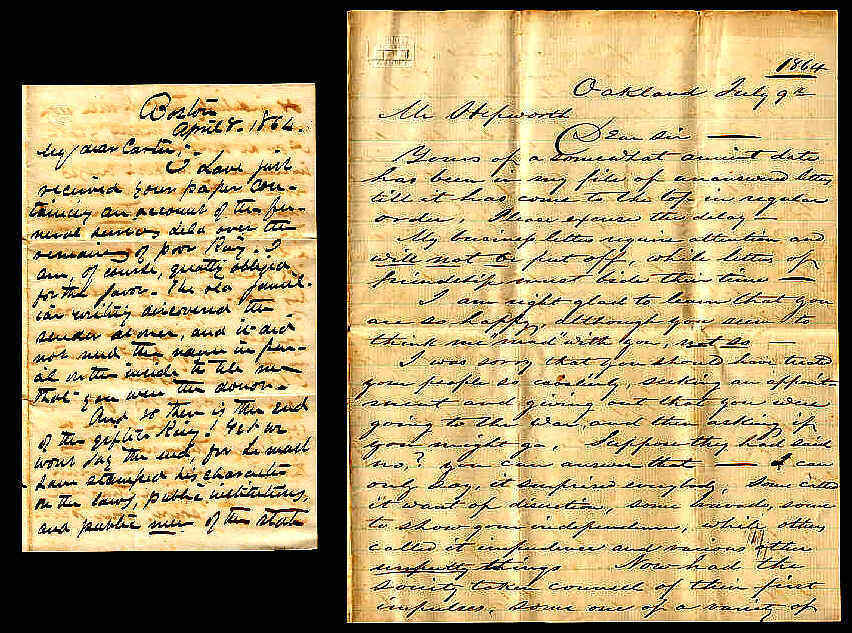 Boston
April 8. 1864.
My dear Carter;-
I have just
received your paper con-
taining an account of the fu-
neral services held over the
remains of poor King. I
am, of course, greatly obliged
for the favor. The old famil-
iar writing discovered the
sender at once, and it did
not need the name in pen-
cil on the inside to tell me
that you were the donor.
And so then is the end
of the gifted King! Yet we
wont say the end, for he must
have stamped his character
on the laws, public institutions,
and public men of the state
1864
Oakland July 9th
Mr Hepworth
Dear Sir —
Yours of a somewhat ancient date
has been in my file of unanswered letters
till it has come to the top in regular
order. Please excuse the delay
My business letters require attention and
will not be put off, while letters of
friendship must bide their time —
I am right glad to learn that you
are so happy, although you seem to
think me "mad" with you, not so —
I was sorry that you should have treated
your people so cavalierly, seeking an appoint-
ment and giving out that you were
going to the war, and then asking if
you might go. Suppose they had said
no,? you can answer that — I can
only say it surprised everybody, some called
it want of discretion, some said, some
to show your independence, while others
called it impudence and various other
things Now had the
society taken counsel of their first
impulses, some one of a variety of